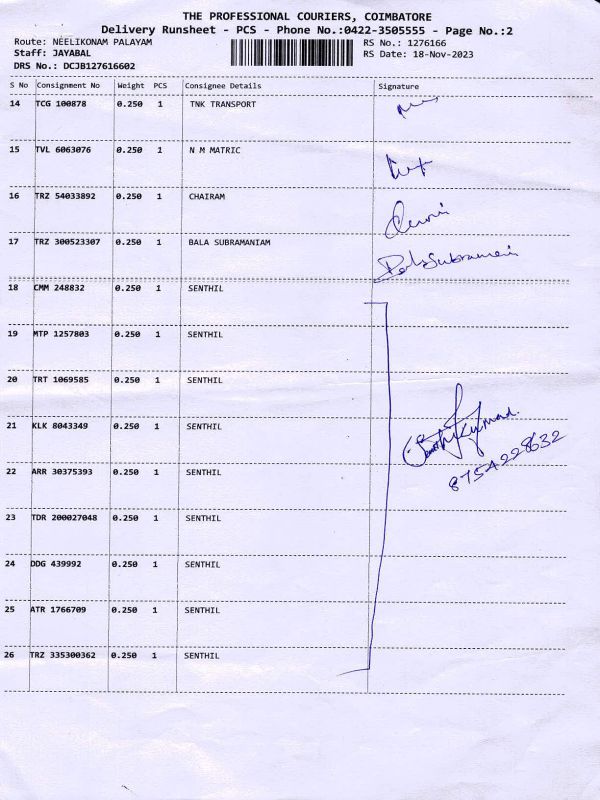 THE PROFESSIONAL COURIERS, COIMBATORE
Delivery Runsheet - PCS - Phone No.:0422-3505555 - Page No.:2
Route: NEELIKONAM PALAYAM RS No.: 1276166
Staff: JAYABAL RS Date: 18-Nov-2023
DRS No.: DCJB127616602
S No Consignment No Weight PCS Consignee Details Signature
14 TCG 100878 0.250 1 TNK TRANSPORT
15 TVL 6063076 0.250 1 N M MATRIC
16 TRZ 54033892 0.250 1 CHAIRAM
17 TRZ 300523307 0.250 1 BALA SUBRAMANIAM BalaSubramani
18 CMM 248832 0.250 1 SENTHIL
19 MTP 1257803 0.250 1 SENTHIL
20 TRT 1069585 0.250 1 SENTHIL
21 KLK 8043349 0.250 1 SENTHIL
8754228632
22 ARR 30375393 0.250 1 SENTHIL
23 TDR 200027048 0.250 1 SENTHIL
24 DDG 439992 0.250 1 SENTHIL
25 ATR 1766709 0.250 1 SENTHIL
26 TRZ 335300362 0.250 1 SENTHIL